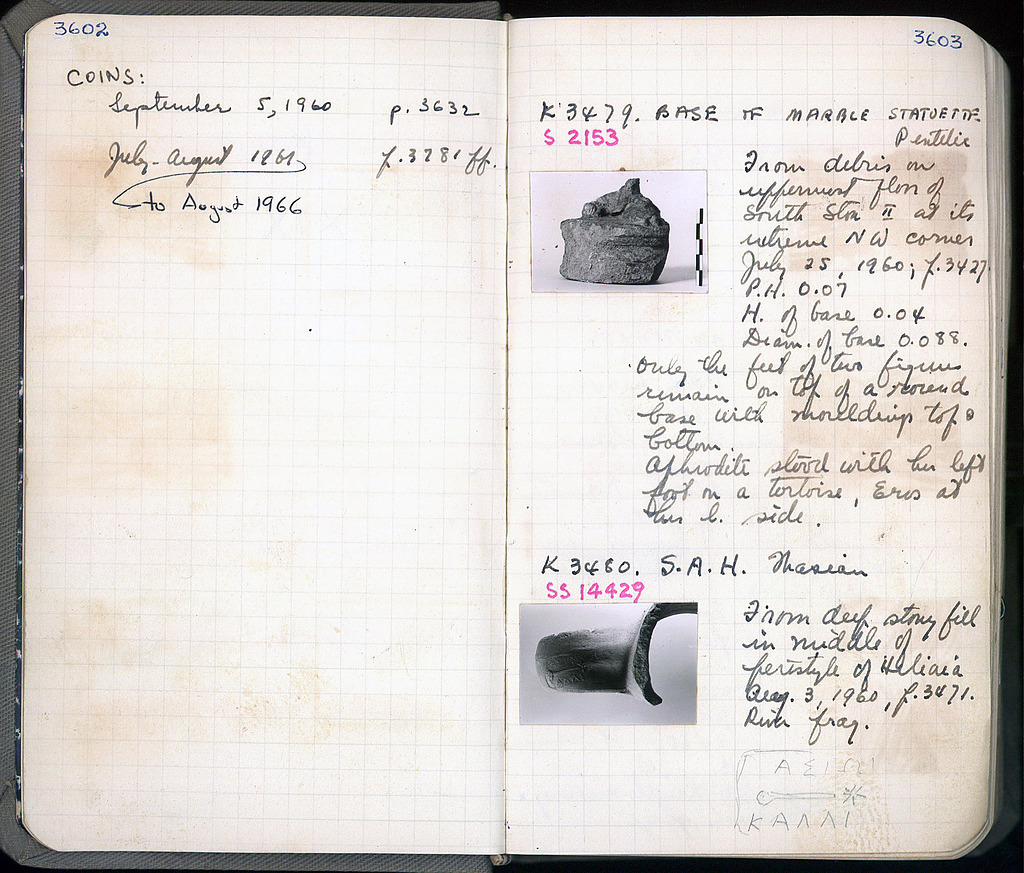 3602
COINS:
September 5, 1960 p. 3632
July-August 1961 p. 3781 ff.
to August 1966
3603
K 3479. BASE OF MARBLE STATUETTE
S 2153
Pentelic
From debris on
uppermost floor of
South Stoa II at its
extreme NW corner
July 25, 1960; p. 3427.
P.H. 0.07
H. of base 0.04
Diam. of base 0.088.
Only the feet of two figures
remain on top of a round
base with mouldings top &
bottom.
Aphrodite stood with her left
foot on a tortoise, Eros at
her l. side.
K 3480. S.A.H. Thasian
SS 14429
From deep stony fill
in middle of
peristyle of Heliaia
Aug. 3, 1960, p. 3471.
Rim frag.
ΑΣΙΩΙ
ΚΑΛΛΙ